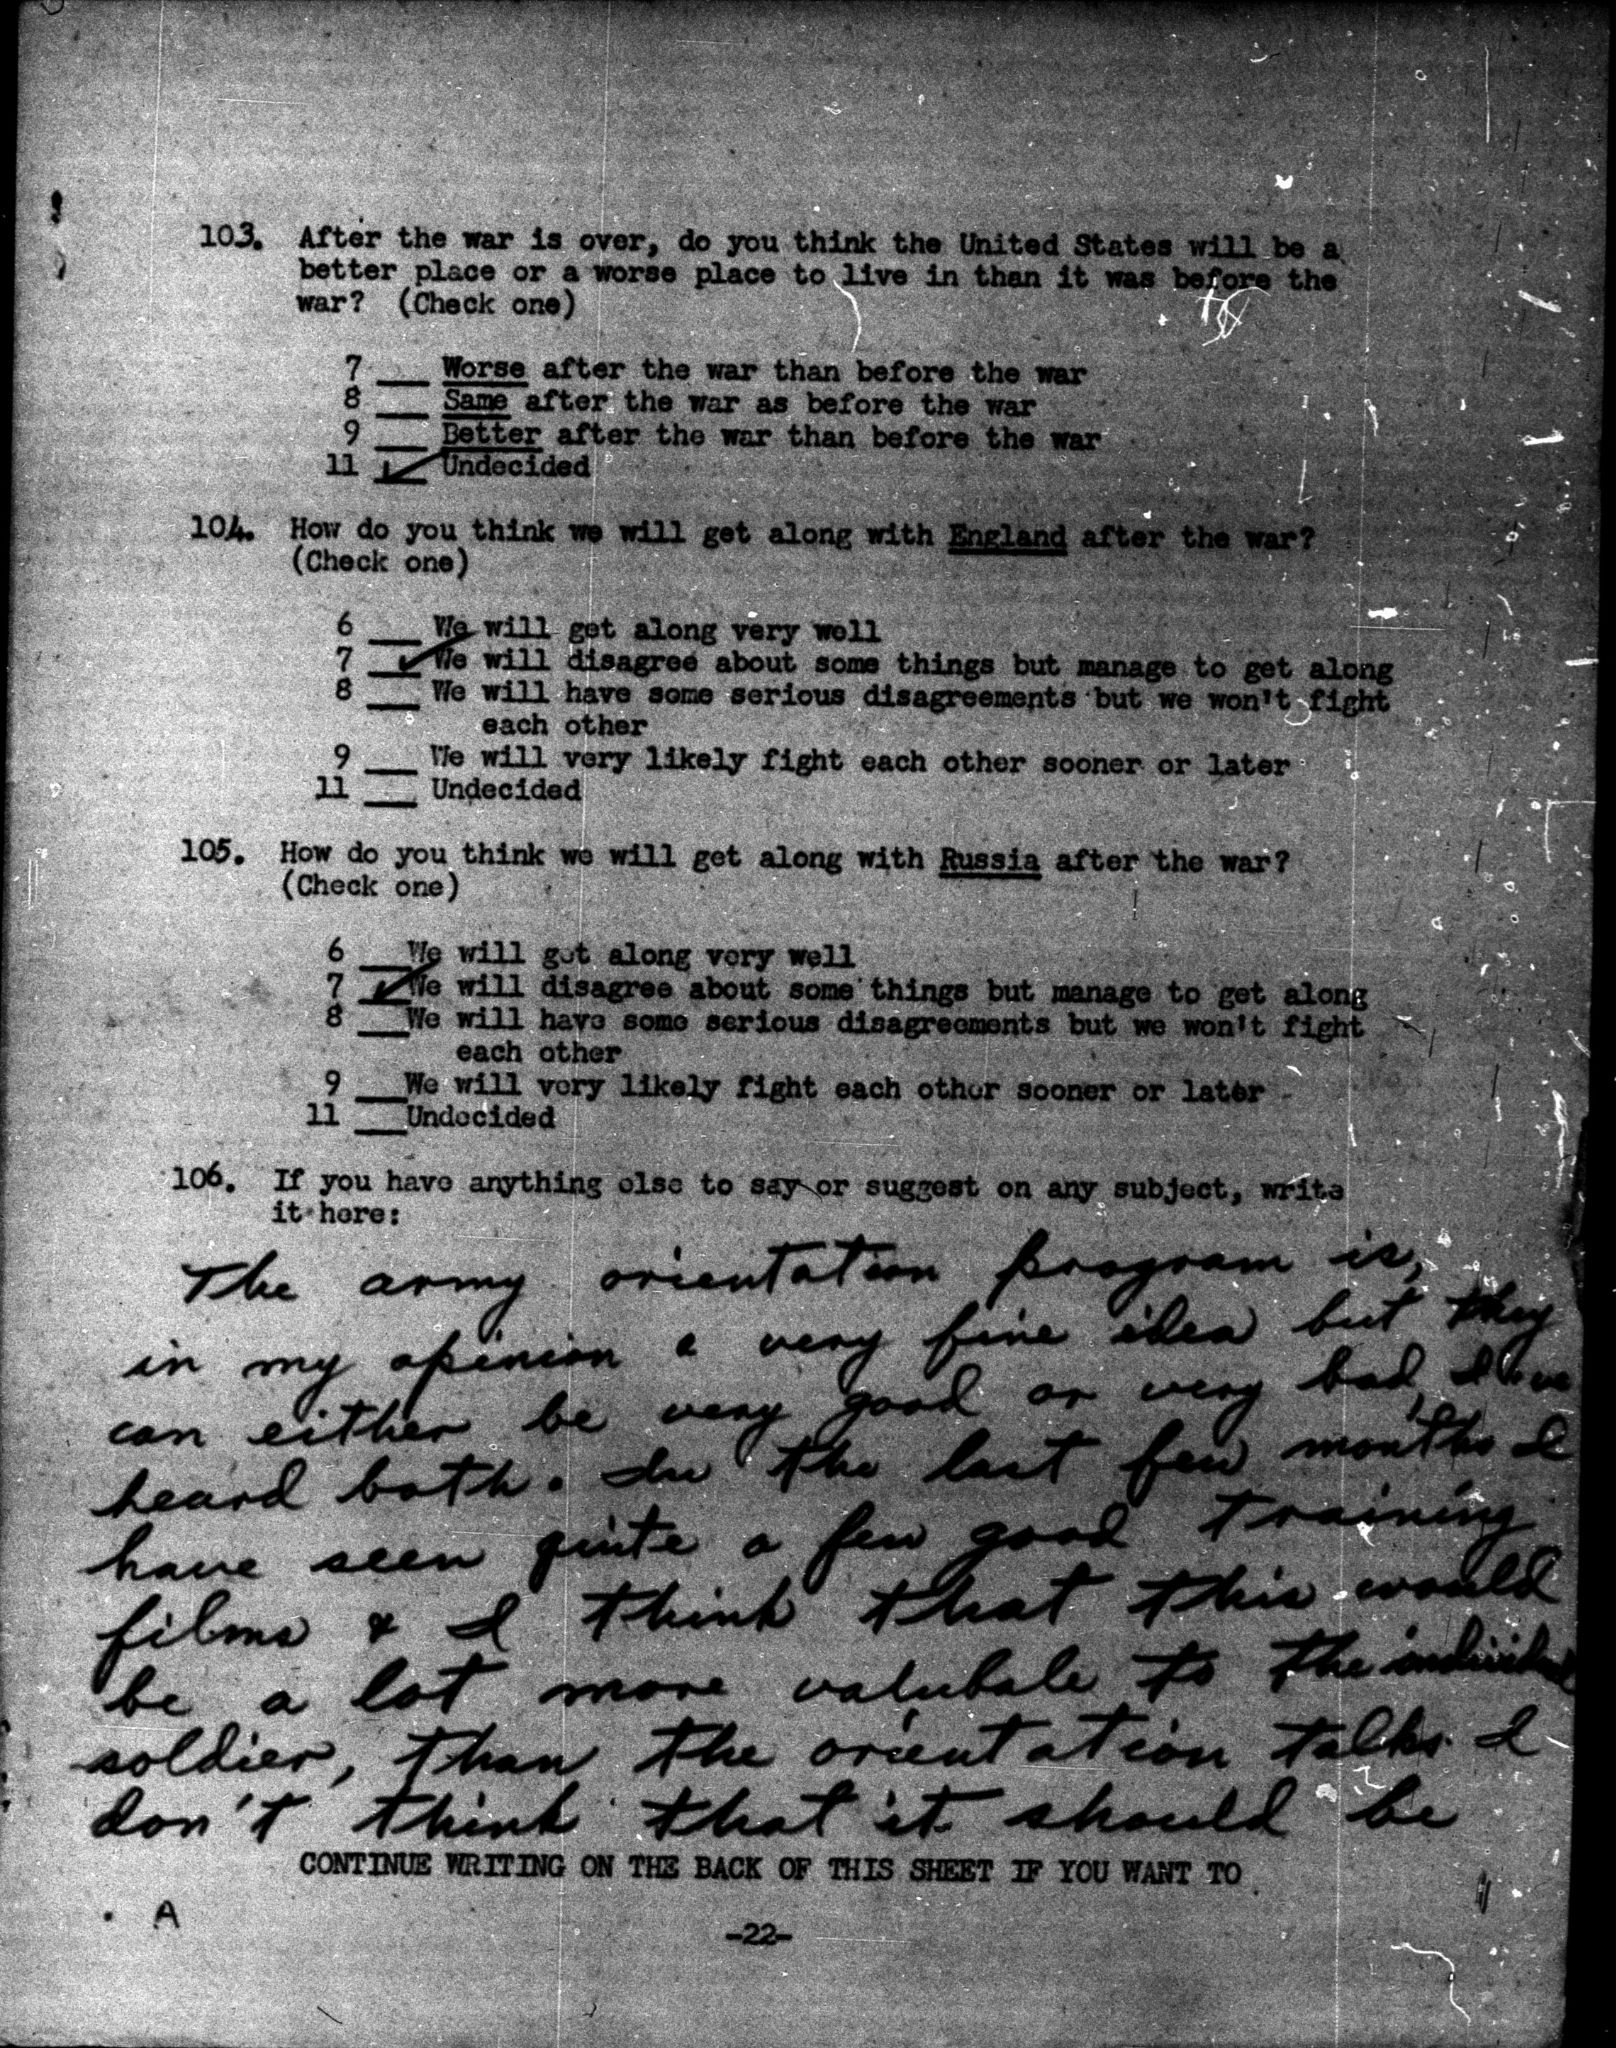 103. After the war is over, do you think the United States will be a
better place or a worse place to live in than it was before the
war? (Check one)
7 ___ Worse after the war than before the war
8 ___ Same after the war as before the war
9 ___ Better after the war than before the war
11 _✓_ Undecided
104. How do you think we will get along with England after the war?
(Check one)
6 ___ We will get along very well
7 _✓_ We will disagree about some things but manage to get along
8 ___ We will have some serious disagreements but we won't fight
each other
9 ___ We will very likely fight each other sooner or later
11 ___ Undecided
105. How do you think we will get along with Russia after the war?
(Check one)
6 ___ We will get along very well
7 _✓_ We will disagree about some things but manage to get along
8 ___ We will have some serious disagreements but we won't fight
each other
9 ___ We will very likely fight each other sooner or later
11 ___ Undecided
106. If you have anything else to say or suggest on any subject, write
it here:
The army orientation program is,
in my opinion a very fine idea but they
can either be very good or very bad, I've
heard both. In the last few months I
have seen quite a few good training
films & I think that this would
be a lot more valubale to the individual
soldier, than the orientation talks. I
don't think that it should be
CONTINUE WRITING ON THE BACK OF THIS SHEET IF YOU WANT TO
A
-22-